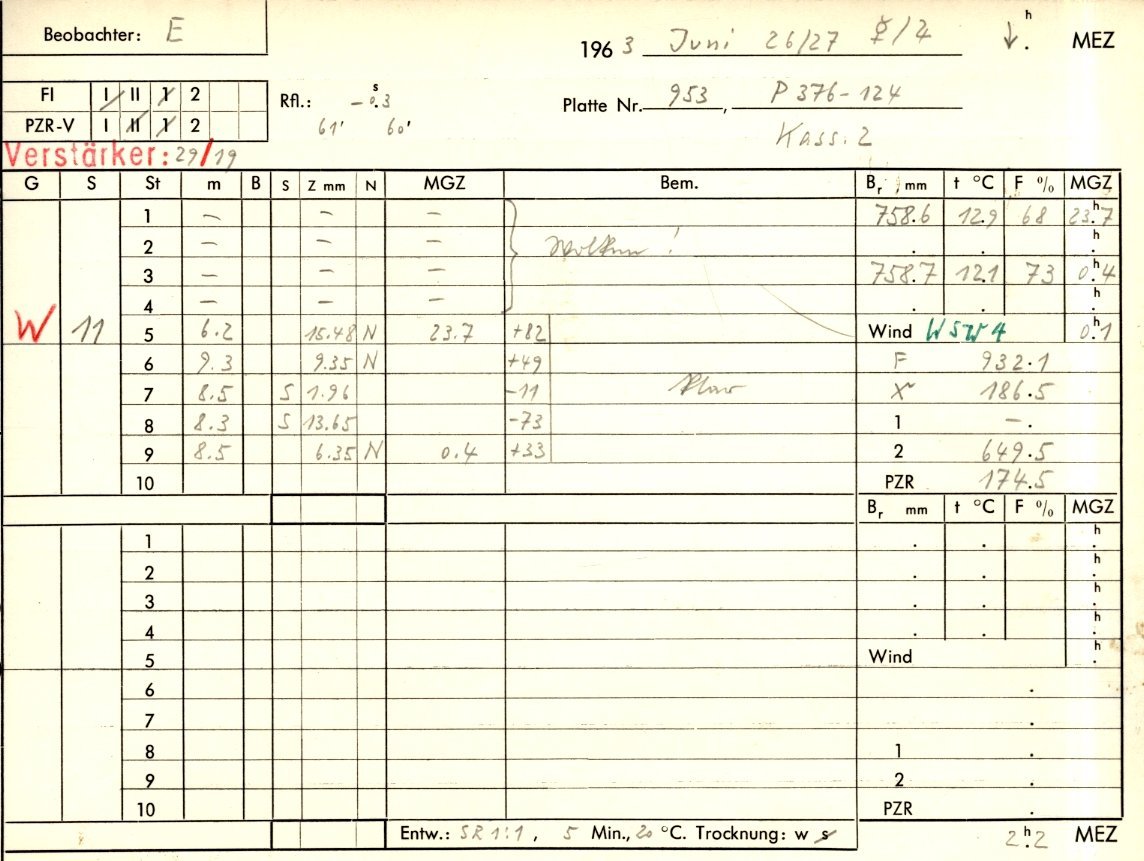 Beobachter: E
1963 Juni 26/27 ☿/♃ ↓ h . MEZ
FI I II 1 2
PZR-V I II 1 2
Rfl.: -0.3 s
61' 60'
Platte Nr. 953, P 376-124
Kass. 2
Verstärker: 29/19
G S St m B S Z mm N MGZ Bem. Br mm t °C F % MGZ
1 — — — Wolken! 758.6 12.9 68 23.7 h
2 — — — . . h .
3 — — — 758.7 12.1 73 0.4 h
4 — — — . . h .
W 11 5 6.2 15.48 N 23.7 +82 Wind WSW 4 0.1 h
6 9.3 9.35 N +49 F 932.1
7 8.5 S 1.96 -11 klar X 186.5
8 8.3 S 13.65 -73 1 -.
9 8.5 6.35 N 0.4 +33 2 649.5
10 PZR 174.5
Br mm t °C F % MGZ
1 . . h .
2 . . h .
3 . . h .
4 . . h .
5 Wind h .
6 .
7 .
8 1 .
9 2 .
10 PZR .
Entw.: SR 1:1, 5 Min., 20 °C. Trocknung: w s 2.2 h MEZ